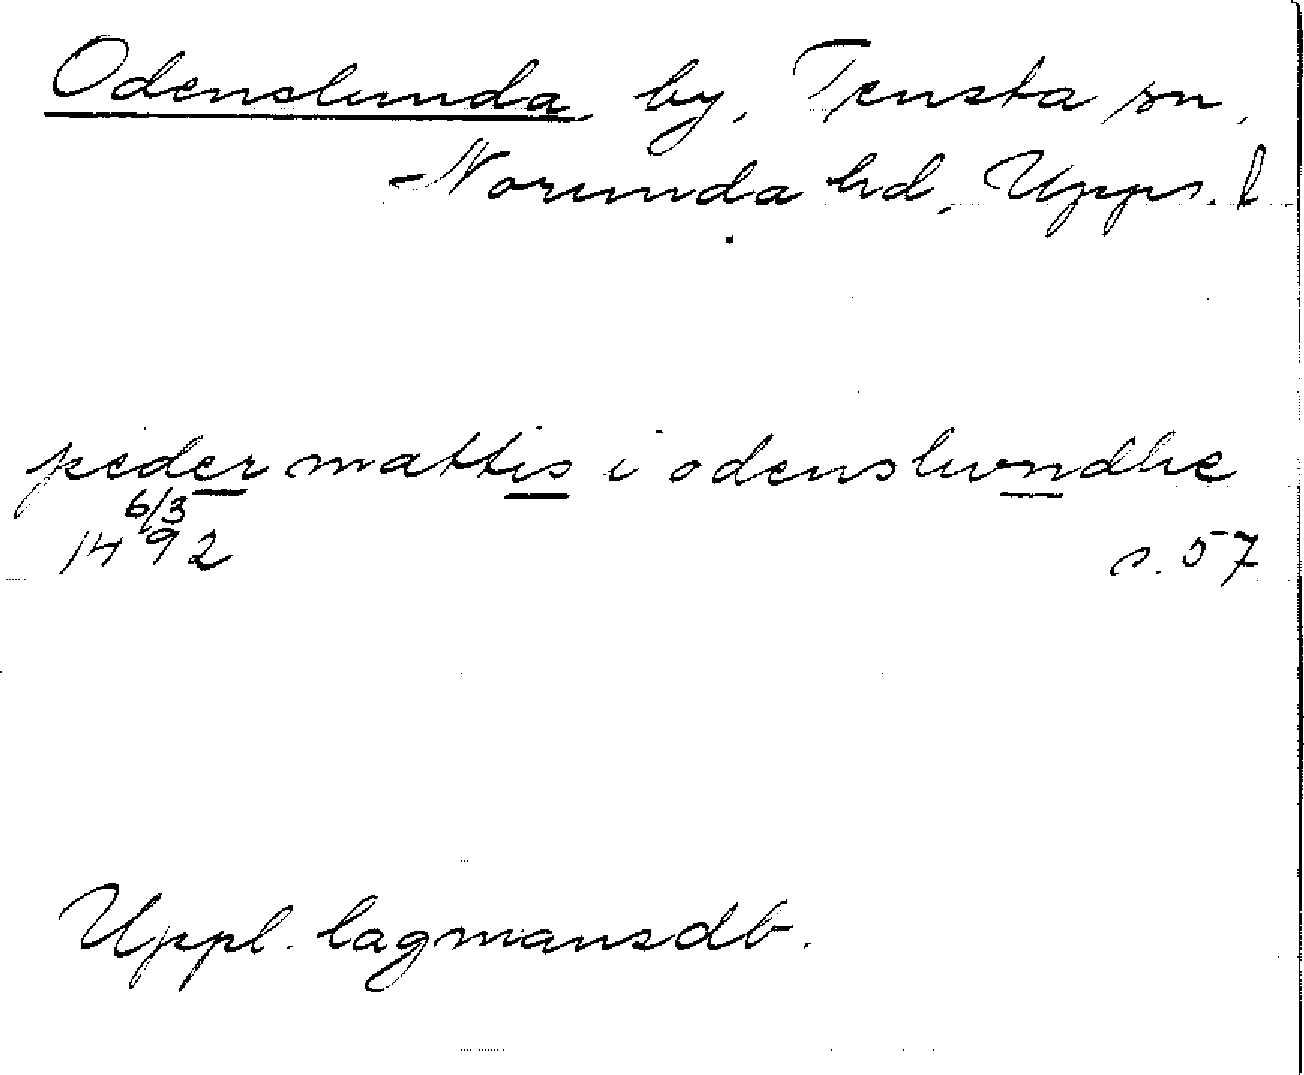 Odenslunda, by, Tensta sn,
Norunda hd, Upps. l
peder mattis i odenslwndhe
6/3
1492 s. 57
Uppl. lagmansdb.